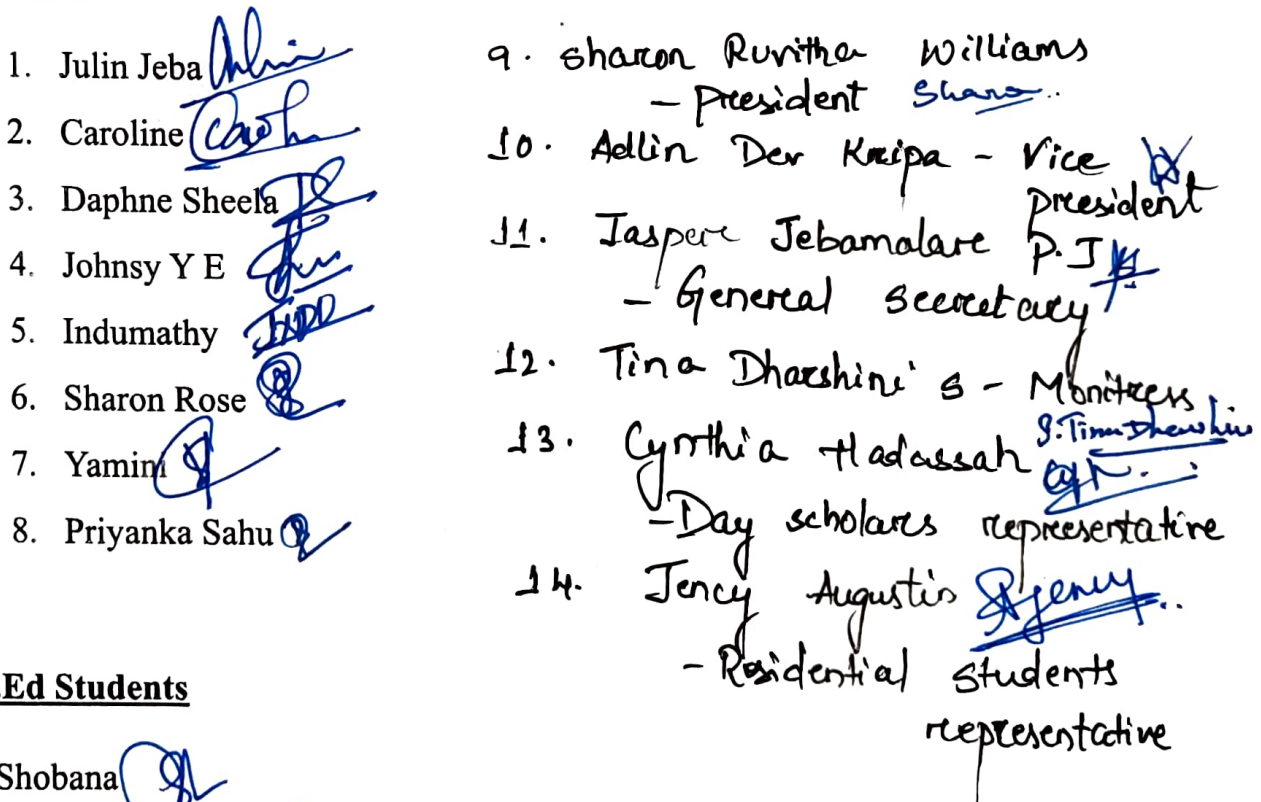 1. Julin Jeba
2. Caroline
3. Daphne Sheela
4. Johnsy Y E
5. Indumathy
6. Sharon Rose
7. Yamini
8. Priyanka Sahu
.Ed Students
Shobana
9. Sharon Ruvitha Williams
- President Sharo..
10. Adlin Dev Kripa - Vice
president
11. Jasper Jebamalar P.J
- General Secretary
12. Tina Dharshini S - Monitress
S. Tina Dharshini
13. Cynthia Hadassah
- Day scholars representative
14. Jency Augustin Jency
- Residential students
representative